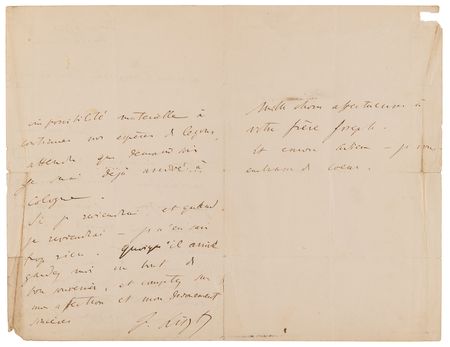 impossibilité matérielle à
continuer nos espèces de leçons,
attendu que demain soir
je serai déjà arrivé à
Cologne.
Si je reviendrai et quand
je reviendrai – je n'en sais
trop rien. Quoiqu'il arrive
gardez moi un bout de
bon souvenir, et comptez sur
mon affection et mon dévouement
sincères
F. Liszt
Mille choses affectueuses à
votre frère Joseph.
Et encore – je vous
embrasse de coeur.